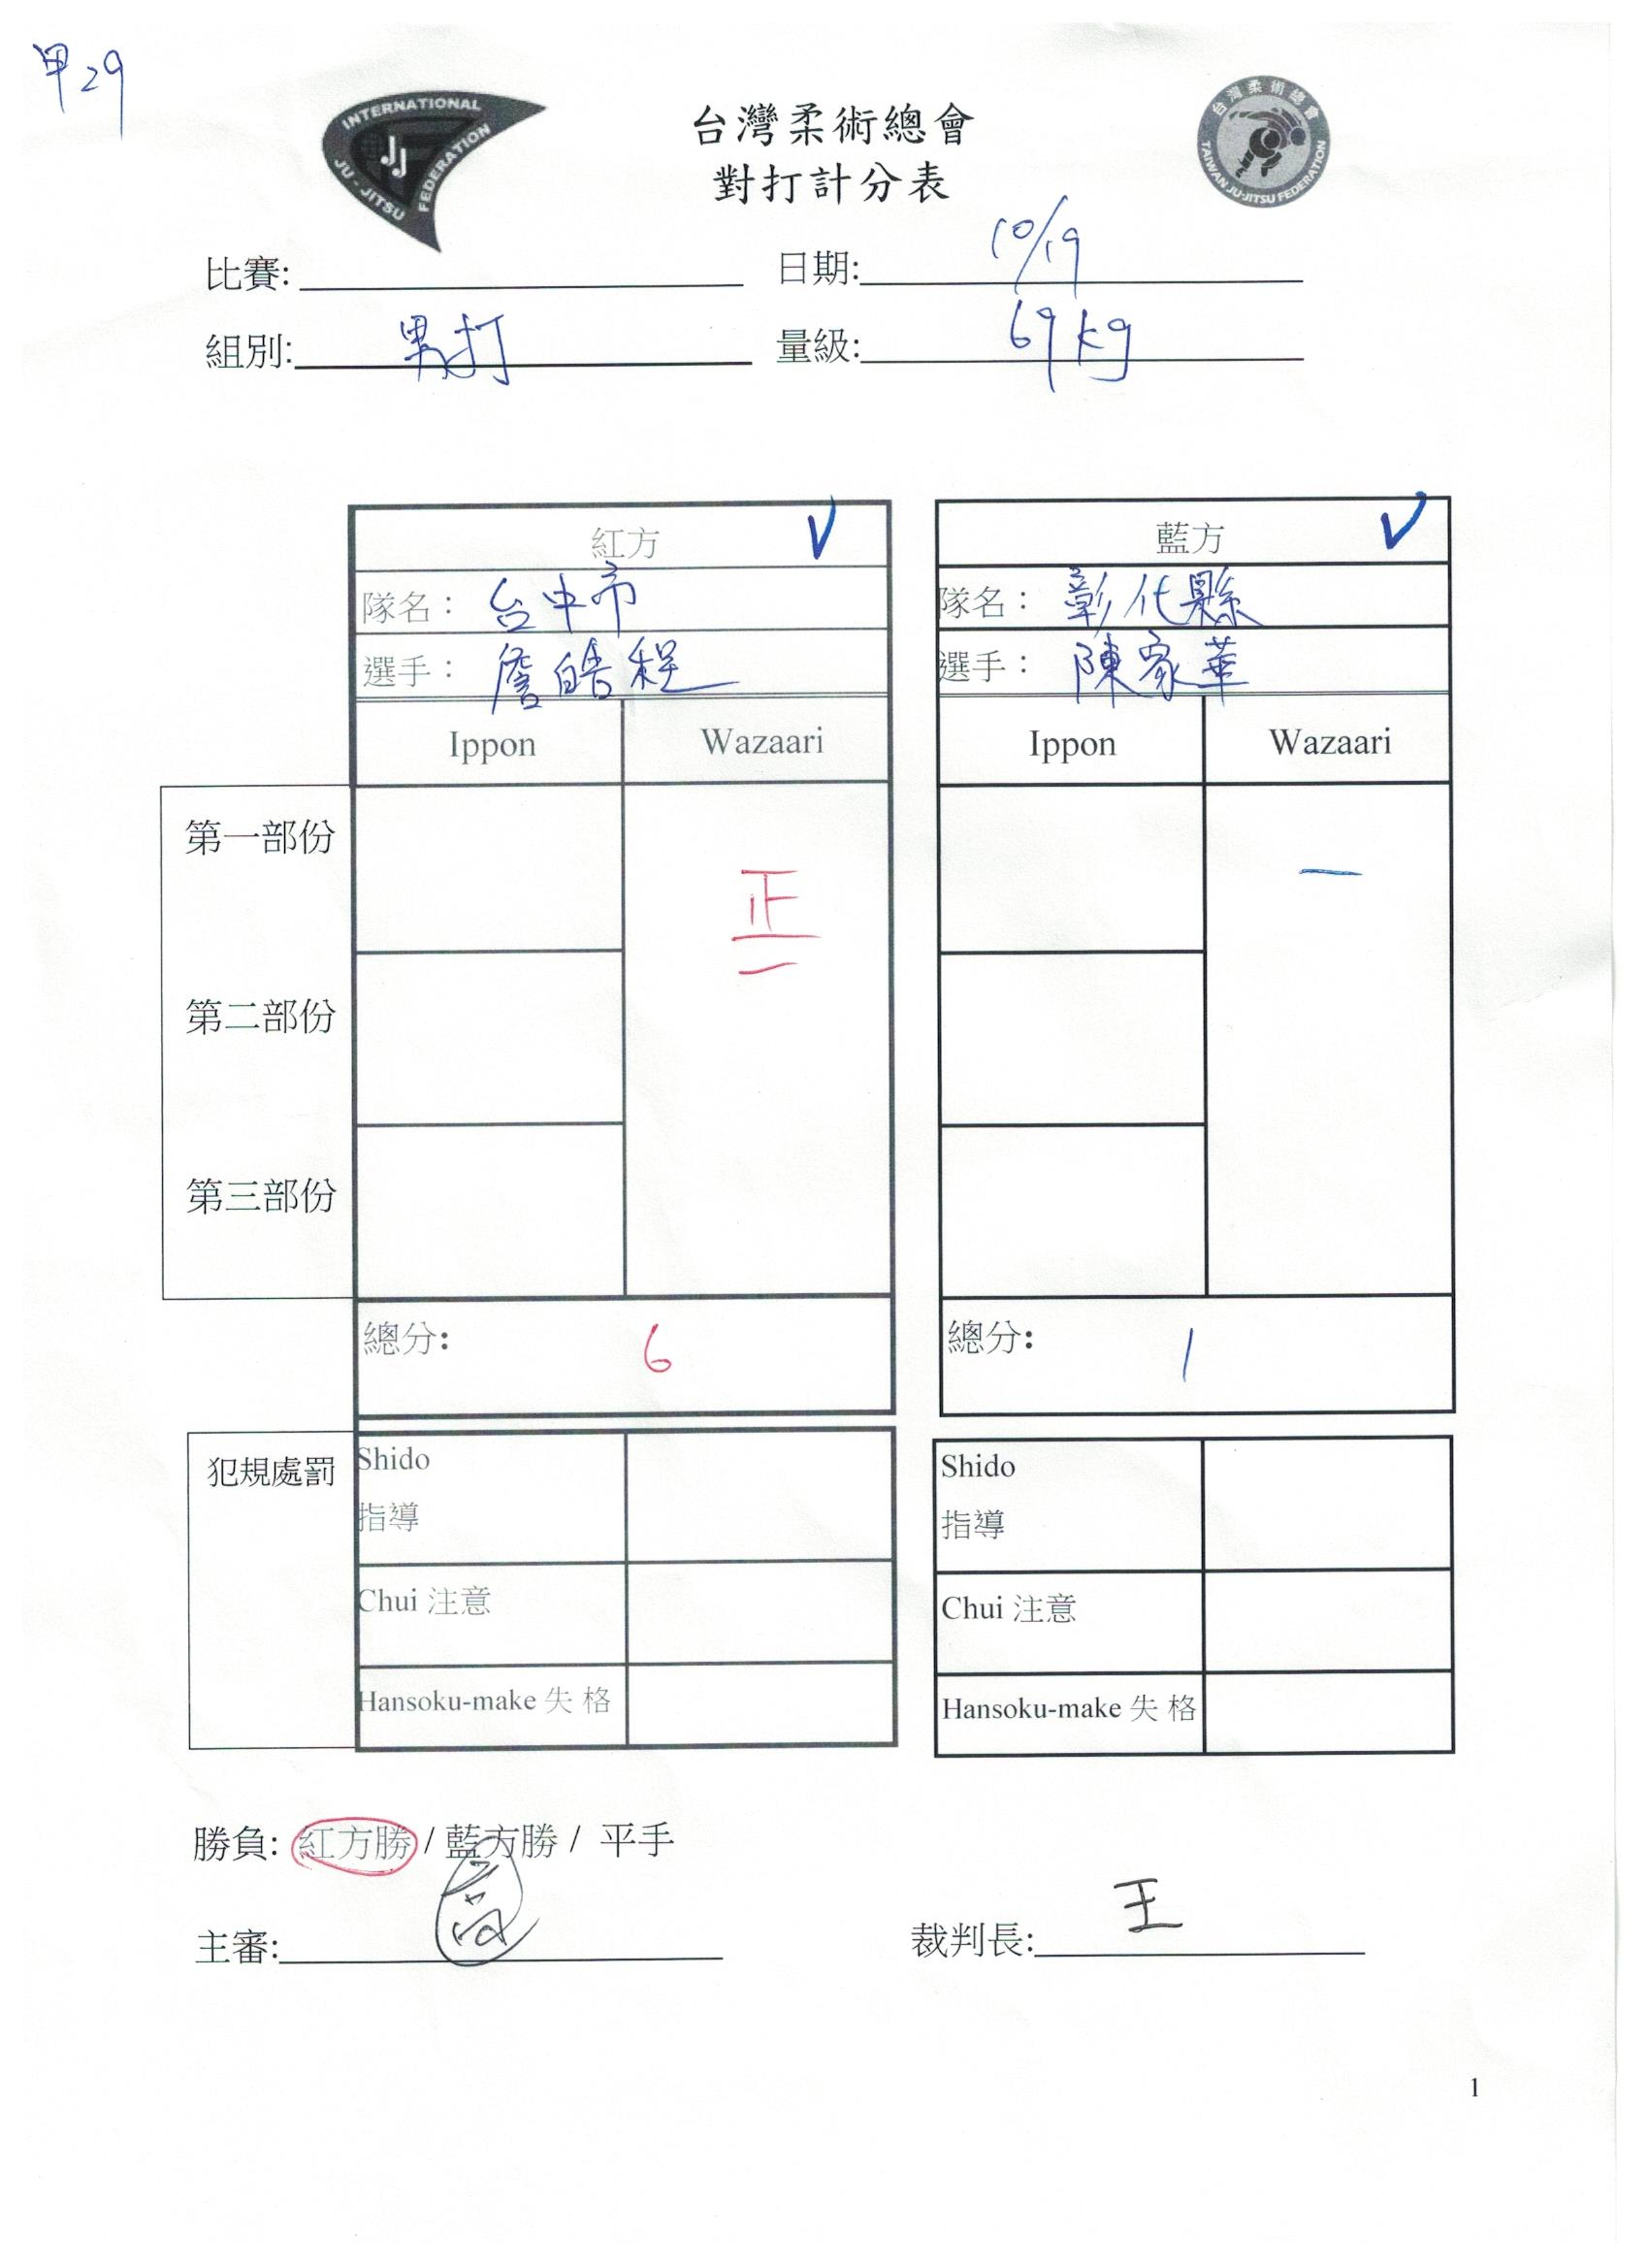 甲29
INTERNATIONAL JU-JITSU FEDERATION
JJ
台灣柔術總會
TAIWAN JU-JITSU FEDERATION
台灣柔術總會
對打計分表
比賽: 日期: 10/19
組別: 男打 量級: 69kg
紅方 V 藍方 V
隊名： 台中市 隊名： 彰化縣
選手： 詹皓程 選手： 陳家華
Ippon Wazaari Ippon Wazaari
第一部份
正 一
一
第二部份
第三部份
總分: 6 總分: 1
犯規處罰 Shido Shido
指導 指導
Chui 注意 Chui 注意
Hansoku-make 失 格 Hansoku-make 失 格
勝負: 紅方勝 / 藍方勝 / 平手
主審: 裁判長: 王
1